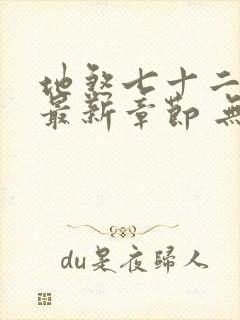 地煞七十二
最新章节 無
du是夜归人